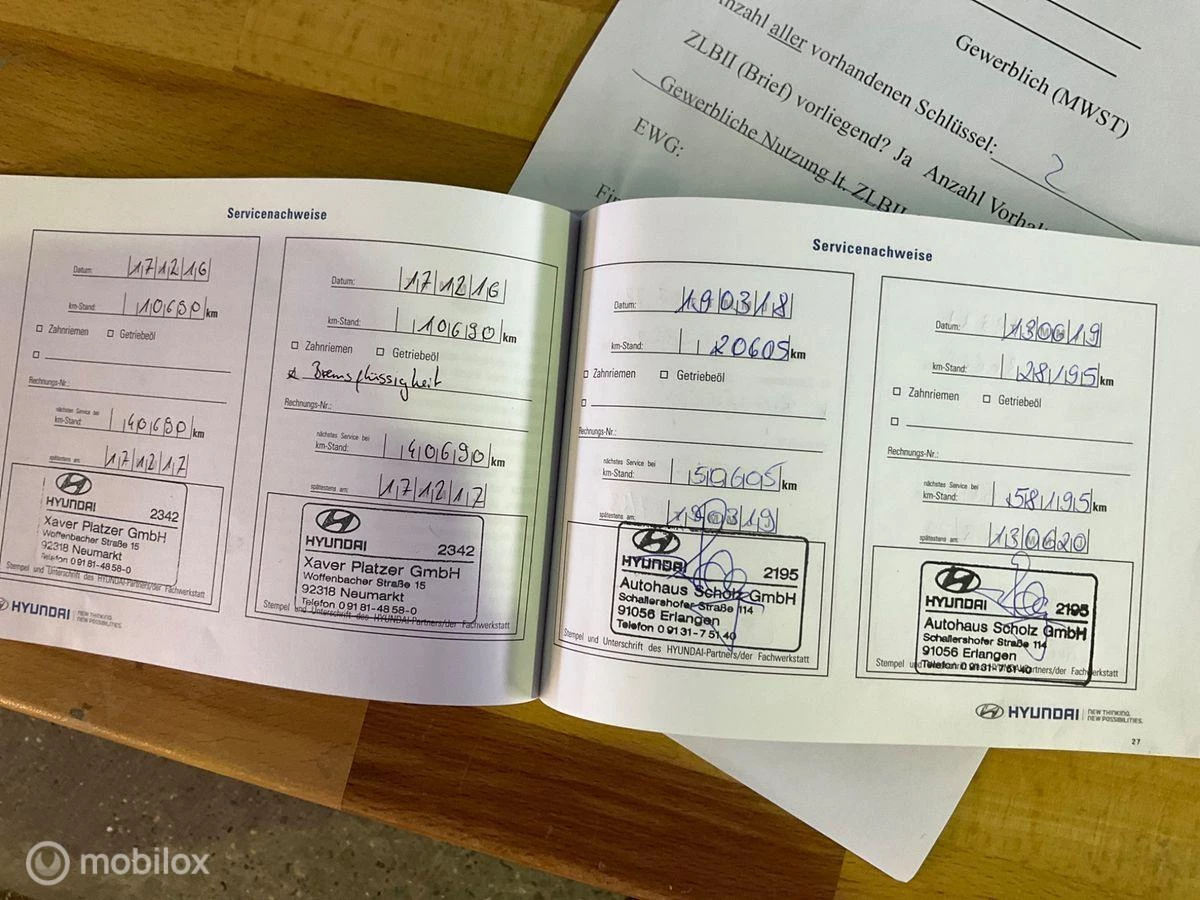 Anzahl aller vorhandenen Schlüssel: 2
Gewerblich (MWST)
ZLBII (Brief) vorliegend? Ja Anzahl
Gewerbliche Nutzung lt. ZLBII
EWG:
Servicenachweise
Datum: 17 12 16
km-Stand: 10690 km
Zahnriemen Getriebeöl
Rechnungs-Nr.:
nächstes Service bei
km-Stand: 40690 km
spätestens am: 17 12 17
HYUNDAI 2342
Xaver Platzer GmbH
Woffenbacher Straße 15
92318 Neumarkt
Telefon 0 91 81-48 58-0
Stempel und Unterschrift des HYUNDAI-Partners/der Fachwerkstatt
HYUNDAI NEW THINKING.
NEW POSSIBILITIES.
Datum: 17 12 16
km-Stand: 10690 km
Zahnriemen Getriebeöl
x Bremsflüssigkeit
Rechnungs-Nr.:
nächstes Service bei
km-Stand: 40690 km
spätestens am: 17 12 17
HYUNDAI 2342
Xaver Platzer GmbH
Woffenbacher Straße 15
92318 Neumarkt
Telefon 0 91 81-48 58-0
Stempel und Unterschrift des HYUNDAI-Partners/der Fachwerkstatt
Servicenachweise
Datum: 19 03 18
km-Stand: 20605 km
Zahnriemen Getriebeöl
Rechnungs-Nr.:
nächstes Service bei
km-Stand: 50605 km
spätestens am: 19 03 19
HYUNDAI 2195
Autohaus Scholz GmbH
Schallershofer Straße 114
91056 Erlangen
Telefon 0 91 31-7 51 40
Stempel und Unterschrift des HYUNDAI-Partners/der Fachwerkstatt
Datum: 13 06 19
km-Stand: 28195 km
Zahnriemen Getriebeöl
Rechnungs-Nr.:
nächstes Service bei
km-Stand: 58195 km
spätestens am: 13 06 20
HYUNDAI 2195
Autohaus Scholz GmbH
Schallershofer Straße 114
91056 Erlangen
Telefon 0 91 31-7 51 40
Stempel und Unterschrift des HYUNDAI-Partners/der Fachwerkstatt
HYUNDAI NEW THINKING.
NEW POSSIBILITIES.
27
mobilox